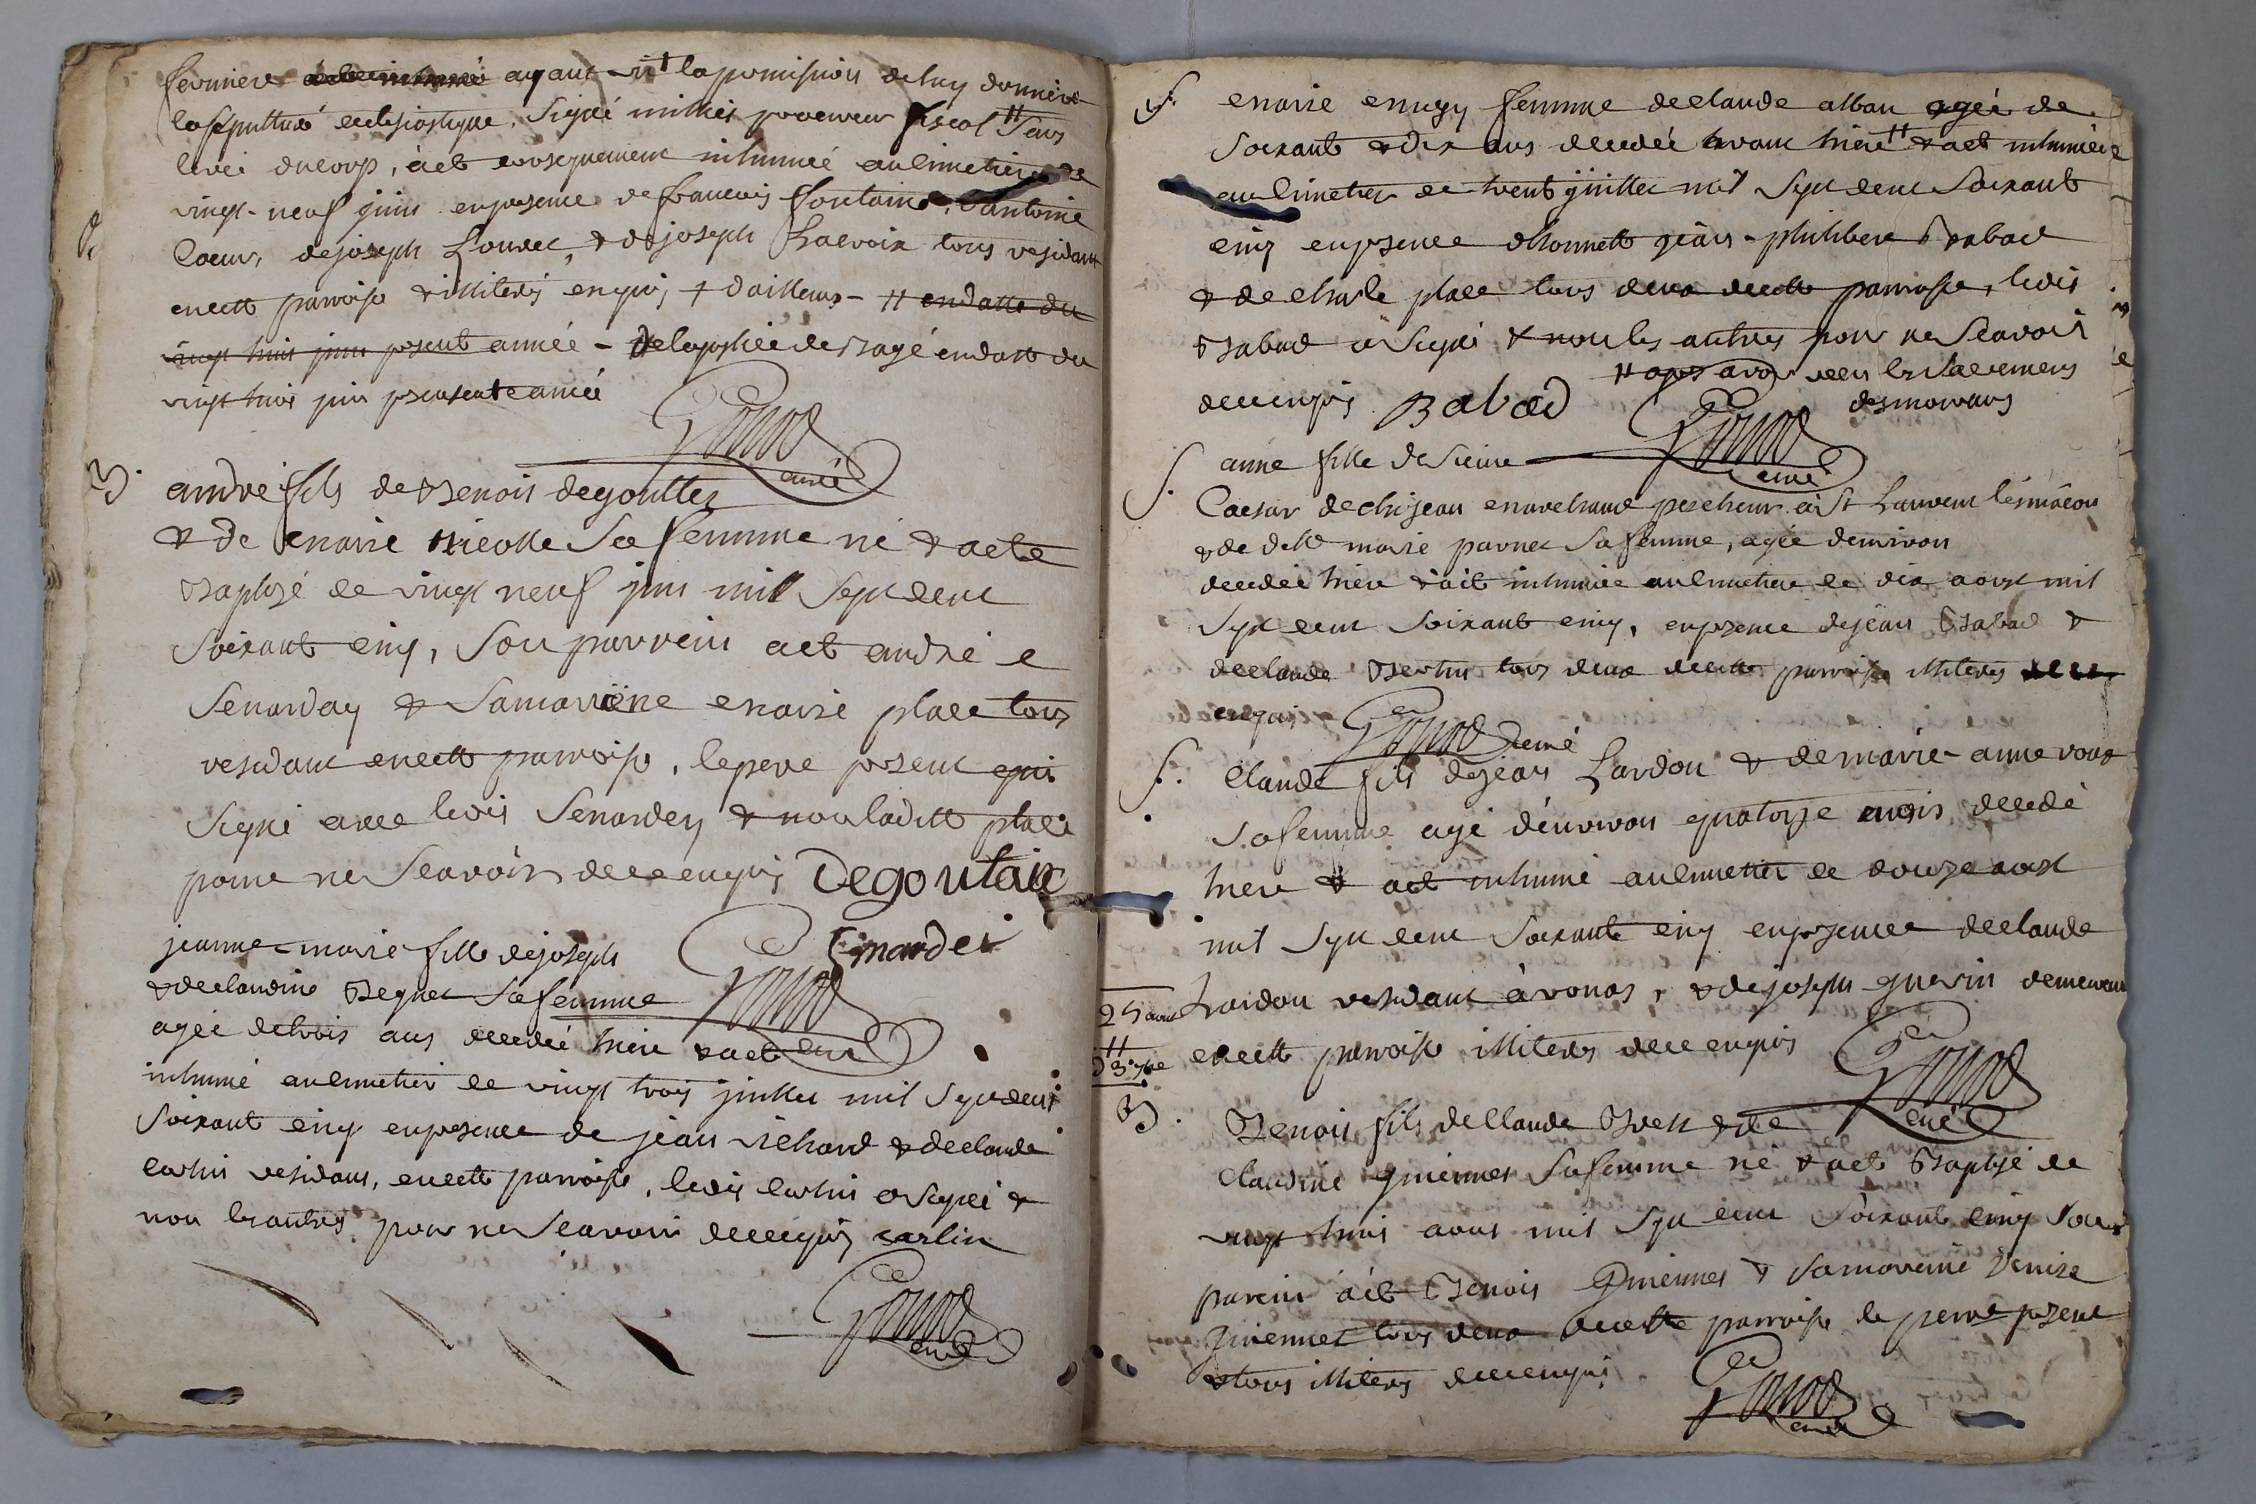 fermiere ayant vû la permission de luy donner
la sepulture eclesiastique, signé millet procureur fiscal # sans
levée du corps, a eté consequemment inhumée au cimetiere le
vingt-neuf juin en presence de francois fontaine, d'antoine
Coeur, de joseph Louvet, & de joseph Lacroix tous residant
en cette parroisse & illiterés enquis + d'ailleurs - # en datte du
vingt huit juin presente année - de la justice de Bagé en datte du
vingt huit juin presente année
Gonod
curé
B. andré fils de Benois degouttes
& de marie nicolle sa femme né & a eté
Baptisé le vingt neuf juin mil sept cent
soixant cinq, son parrein a eté andré
Senarday & sa marrene marie place tous
residant en cette parroisse, le pere present qui
signé avec ledit Senardey & non laditte place
pour ne scavoir de ce enquis Degoutaix
Senardei
jeanne-marie fille de joseph
& de claudine Beguet sa femme
agée de trois ans decedée hier & a eté
inhumé au cimetier le vingt trois juillet mil sept cent
soixant cinq en presence de jean richard & de claude
carlin residans, en cette parroisse, ledit carlin a signé &
non les autres pour ne scavoir de ce enquis carlin
Gonod
curé
S. marie mugy femme de claude alban agée de
soixant & dix ans decedée avant hier # & a eté inhumée
au cimetier le trent juillet mil sept cent soixant
cinq en presence d'honnette jean-philibert Babad
& de charle place tous deux de cette parroisse, ledit
Babad a signé & non les autres pour ne scavoir
# après avoir recu les sacremens
de ce enquis Babad des mourans
Gonod
curé
S. anne fille de sieur
Caesar de chijeau marchand pescheur à St Laurent lès mâcon
& de delle marie parnet sa femme, agée d'environ
decedée hier & a eté inhumée au cimetiere le dix aoust mil
sept cent soixant cinq, en presence de jean Babad &
de claude Berthin tous deux de cette parroisse illiterés
enquis Gonod curé
S. Claude fils de jean Lardon & de marie-anne
sa femme agé d'environ quatorze mois decedé
hier & a eté inhumé au cimetier le douze aoust
mil sept cent soixante cinq en presence de claude
Lardon residant à vonas, & de joseph guerin demeurant
en cette parroisse illiterés de ce enquis
Gonod
curé
25 aout
#
d 3e 7bre
B. Benois fils de Claude & de
Claudine guiennet sa femme né & a eté Baptisé le
vingt huit aout mil sept cent soixant cinq son
parein a eté Benois guiennet & sa mareine Denise
guiennet tous deux de cette parroisse le pere present
& tous illiterés de ce enquis.
Gonod
curé